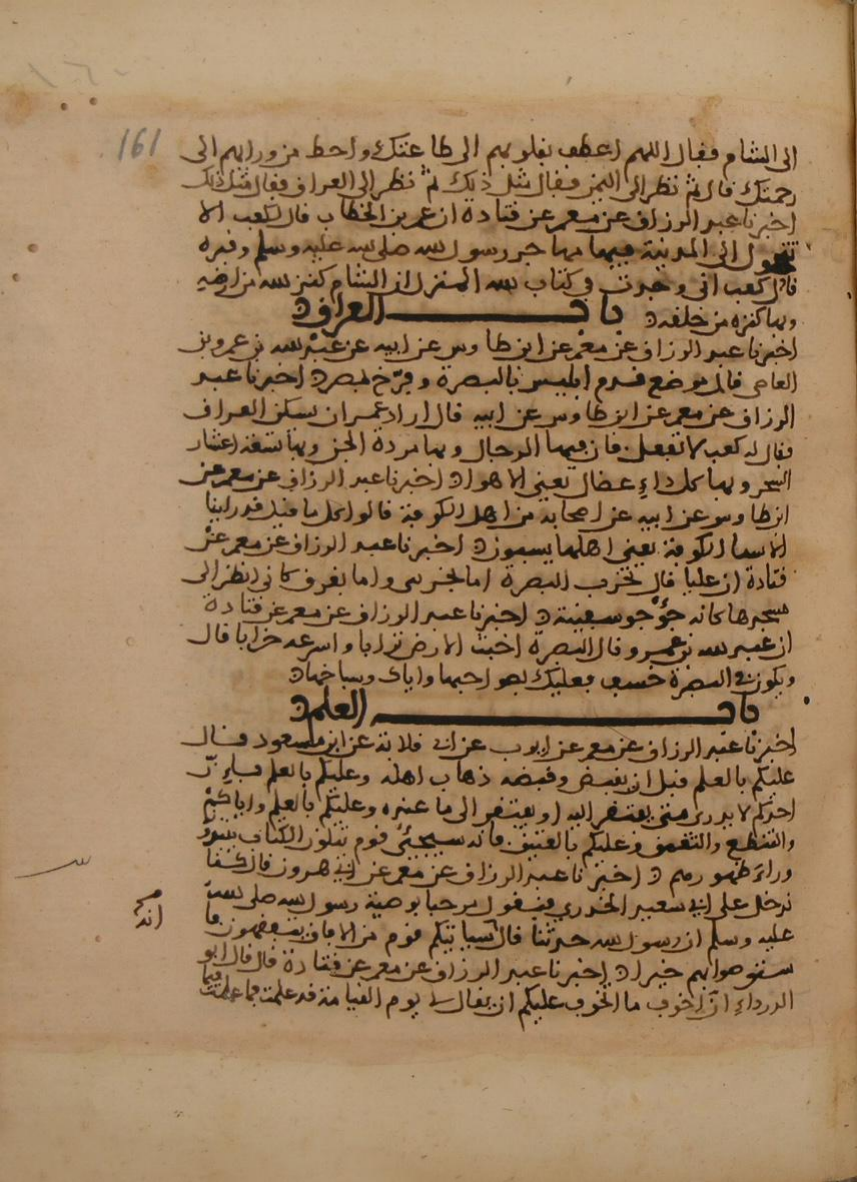 161
الى الشام فقال اللهم اعطف بقلوبهم الى طاعتك واحط من ورايهم الى
رحمتك قال ثم نظر الى اليمن فقال مثل ذلك ثم نظر الى العراق فقال مثل ذلك
اخبرنا عبد الرزاق عن معمر عن قتادة ان عمر بن الخطاب قال لكعب الا
تتحول الى المدينة فيها مهاجر رسول الله صلى الله عليه وسلم وقبره
قال كعب اني وجدت في كتاب الله المنزل ان الشام كنز الله من ارضه
وبها كنزه من خلقه
باب العراق
اخبرنا عبد الرزاق عن معمر عن ابن طاوس عن ابيه عن عبد الله بن عمرو بن
العاص قال يوضع قدم ابليس بالبصرة وفرخ بمصر اخبرنا عبد
الرزاق عن معمر عن ابن طاوس عن ابيه قال اراد عمر ان يسكن العراق
فقال له كعب لا تفعل فان فيها الدجال وبها مردة الجن وبها تسعة اعشار
السحر وبها كل داء عضال يعني الاهوا اخبرنا عبد الرزاق عن معمر عن
ابن طاوس عن ابيه عن اصحابه من اهل الكوفة قالوا كل ما قيل قد راينا
الا سبا الكوفة يعني اهلها يسبون اخبرنا عبد الرزاق عن معمر عن
قتادة ان عليا قال تخرب البصرة اما بحريق واما بغرق كاني انظر الى
مسجدها كانه جؤجو سفينة اخبرنا عبد الرزاق عن معمر عن قتادة
ان عبد الله بن عمرو قال البصرة اخبث الارض ترابا واسرعه خرابا قال
ويكون في البصرة خسف فعليك بضواحيها واياك وسباخها
باب العلم
اخبرنا عبد الرزاق عن معمر عن ايوب عن ابي قلابة عن ابن مسعود قال
عليكم بالعلم قبل ان يقبض وقبضه ذهاب اهله وعليكم بالعلم فان
احدكم لا يدري متى يفتقر اليه او يفتقر الى ما عنده وعليكم بالعلم واياكم
والتنطع والتعمق وعليكم بالعتيق فانه سيجئ قوم يتلون الكتاب ينبذونه
وراء ظهورهم اخبرنا عبد الرزاق عن معمر عن ابي هرون قال كنا
ندخل على ابي سعيد الخدري فيقول مرحبا بوصية رسول الله صلى الله
عليه وسلم ان رسول الله حدثنا قال سياتيكم قوم من الافاق يتفقهون فا
انه
ستوصوا بهم خيرا اخبرنا عبد الرزاق عن معمر عن قتادة قال قال ابو
الدرداء ان اخوف ما اخوف عليكم ان يقال لي يوم القيامة قد علمت فما عملت فيما